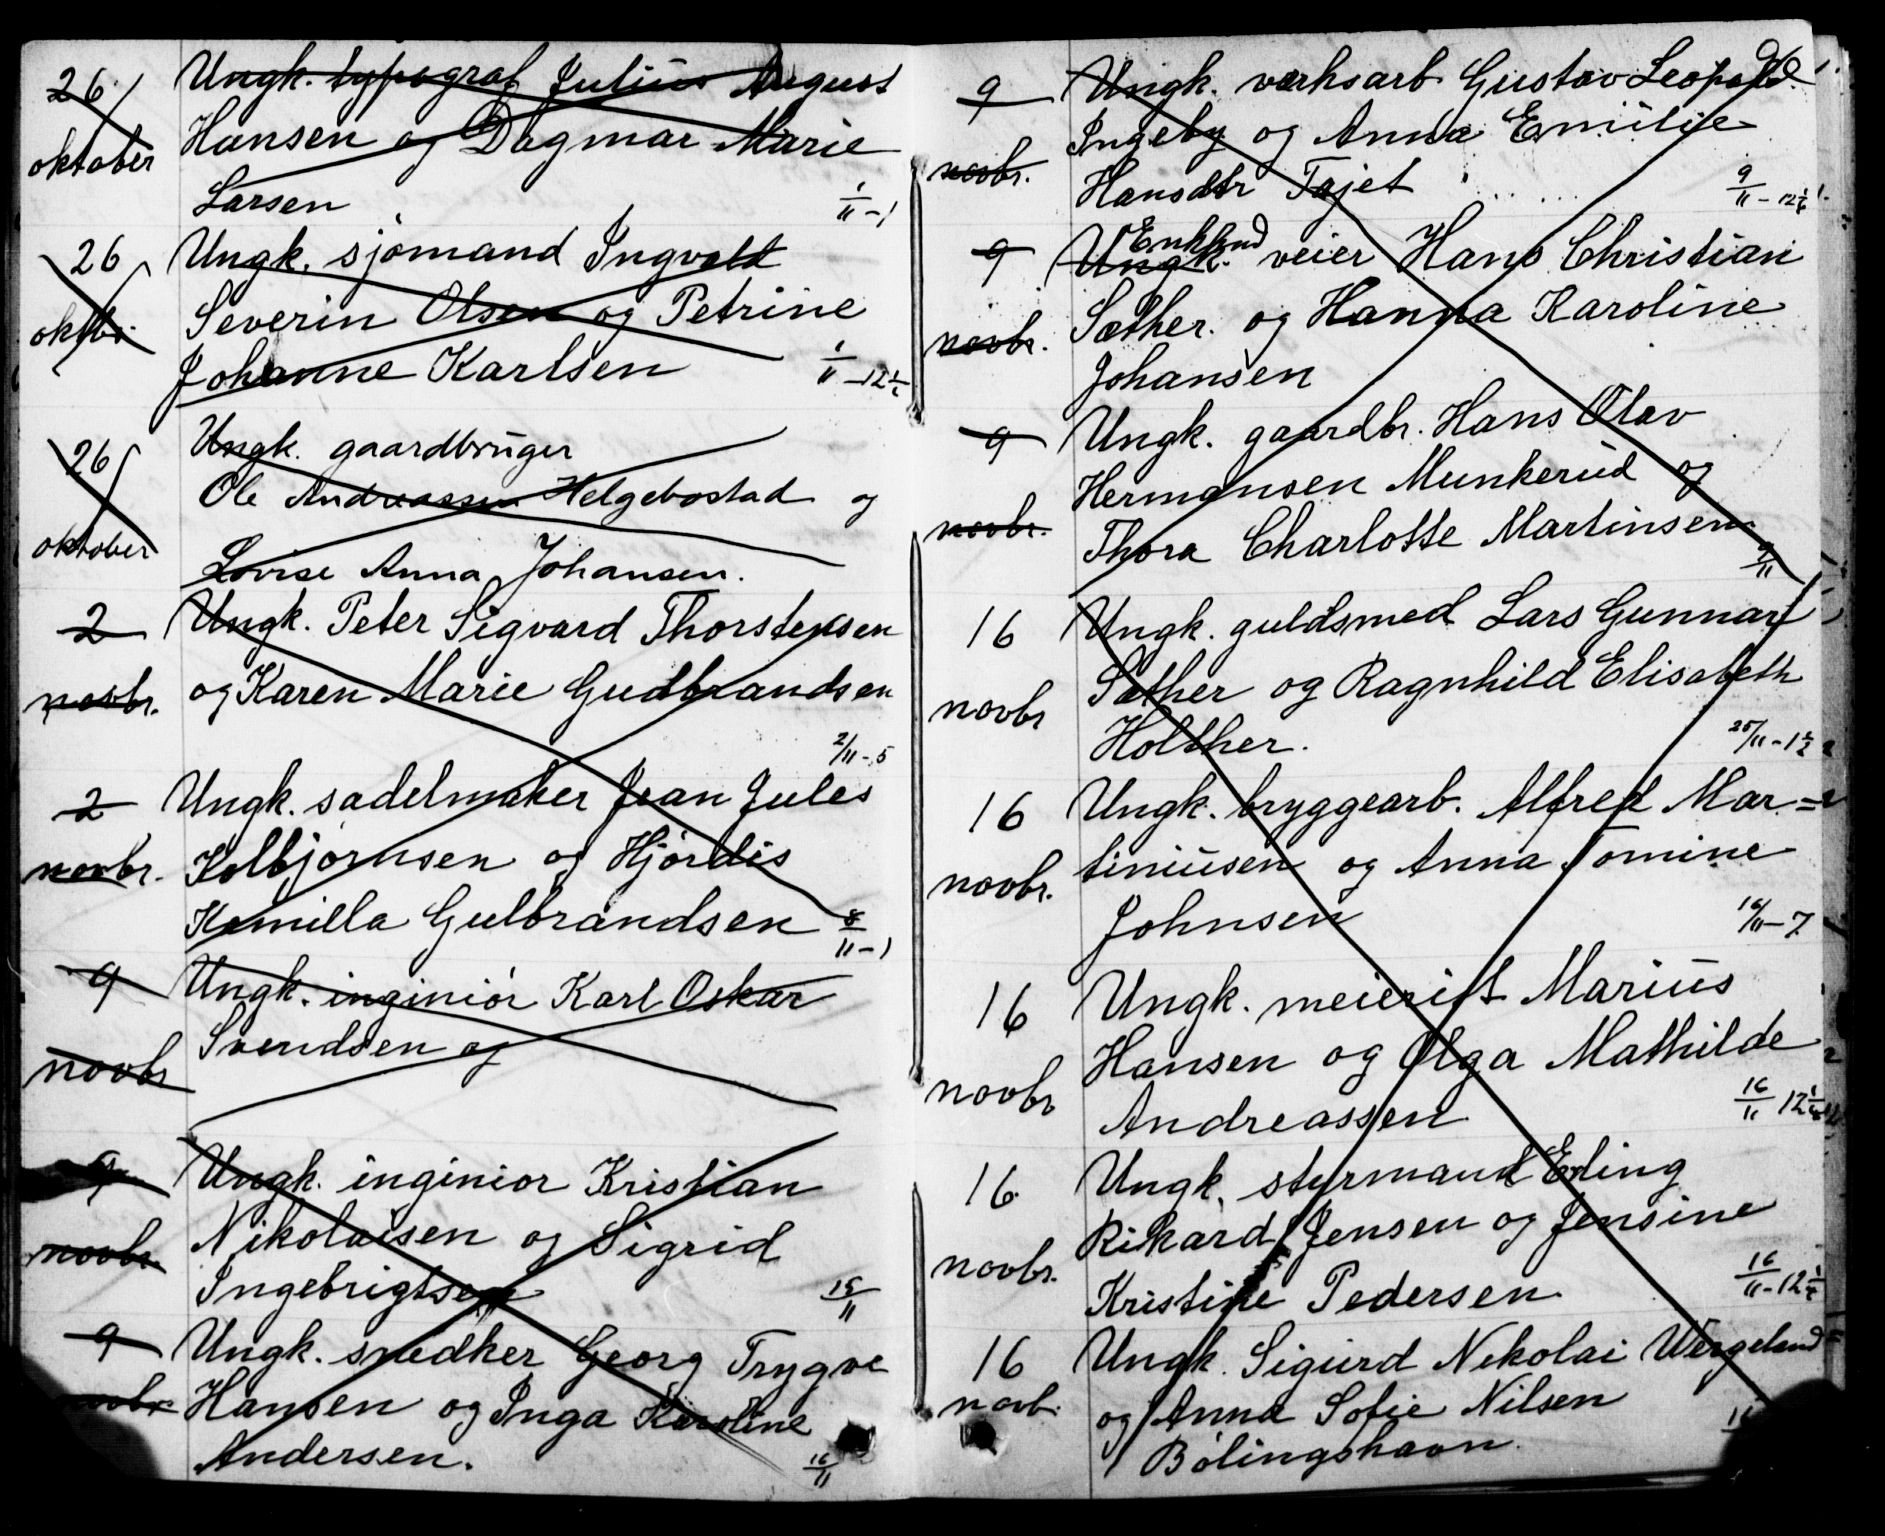 26 Ungk. typograf Julius August
oktober Hansen og Dagmar Marie
Larsen 1/11 - 1
26 Ungk. sjømand Ingvald
oktbr. Severin Olsen og Petrine
Johanne Karlsen 1/11 - 12 1/2
26 Ungk. gaardbruger
Ole Andreassen Helgebostad og
oktober
Lovise Anna Johansen.
2 Ungk. Peter Sigvard Thorstensen
novbr. og Karen Marie Gudbrandsen
2/11 - 5
2 Ungk. sadelmaker Jean Jules
novbr. Kolbjørnsen og Hjørdis
Kamilla Gulbrandsen 8/11 - 1
9 Ungk. inginiør Karl Oskar
novbr Svendsen og
9 Ungk. inginiør Kristian
novbr. Nikolaisen og Sigrid
Ingebrigtsen 15/11
9 Ungk. snedker Georg Trygve
novbr Hansen og Inga Karoline
Andersen. 16/11
96
9 Ungk. værksarb. Gustav Leopold
Ingeby og Anna Emilie
novbr. Hansdtr Tajet 9/11 - 12
9 Ungk. Enkkmd veier Hans Christian
novbr. Sæther. og Hanna Karoline
Johansen
9 Ungk. gaardbr. Hans Olav
Hermansen Munkerud og
novbr. Thora Charlotte Martinsen
9/11
16 Ungk. guldsmed Lars Gunnar
Sæther og Ragnhild Elisabeth
novbr Holther. 25/11 - 1 1/2
16 Ungk. bryggearb. Alfred Mar-
novbr. tiniusen og Anna Tomine
Johnsen 16/11 - 7
16 Ungk. meierist Marius
Hansen og Olga Mathilde
novbr Andreassen 16/11 12
16 Ungk. styrmand Erling
Rikard Jensen og Jensine
novbr. Kristine Pedersen 16/11 - 12
16 Ungk. Sigurd Nikolai Wergeland
novb. og Anna Sofie Nilsen
Bølingshavn.